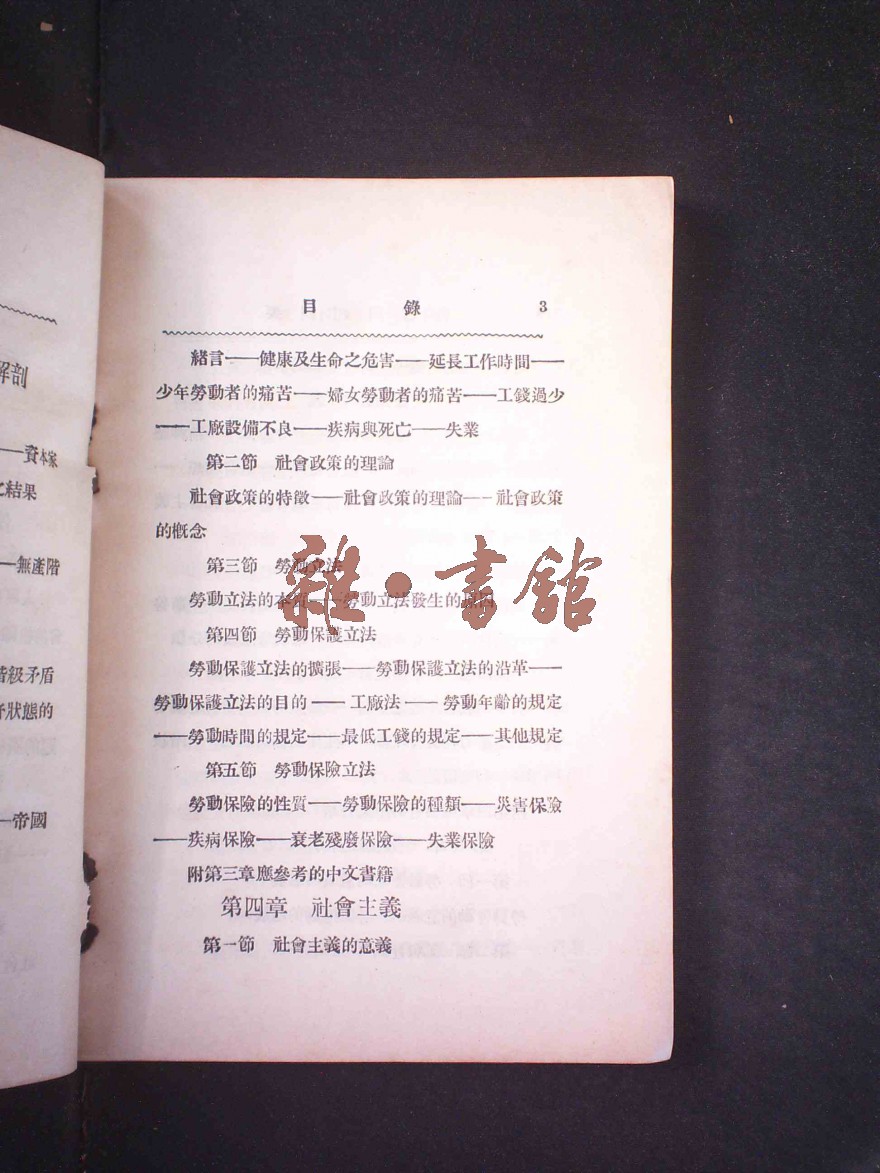 目錄 3
緒言——健康及生命之危害——延長工作時間——
少年勞動者的痛苦——婦女勞動者的痛苦——工錢過少
——工廠設備不良——疾病與死亡——失業
第二節 社會政策的理論
社會政策的特徵——社會政策的理論——社會政策
的概念
第三節 勞動立法
勞動立法的本質——勞動立法發生的原因
第四節 勞動保護立法
勞動保護立法的擴張——勞動保護立法的沿革——
勞動保護立法的目的——工廠法——勞動年齡的規定
——勞動時間的規定——最低工錢的規定——其他規定
第五節 勞動保險立法
勞動保險的性質——勞動保險的種類——災害保險
——疾病保險——衰老殘廢保險——失業保險
附第三章應參考的中文書籍
第四章 社會主義
第一節 社會主義的意義
解剖
——資本家
結果
——無產階
階級矛盾
狀態的
—帝國
雜·書館